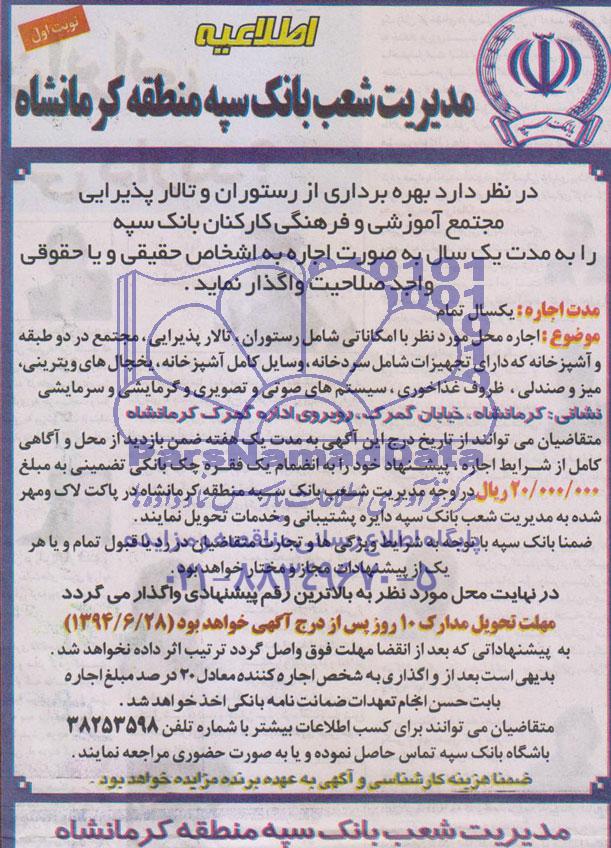 نوبت اول
اطلاعیه
بانک سپه
مدیریت شعب بانک سپه منطقه کرمانشاه
در نظر دارد بهره برداری از رستوران و تالار پذیرایی
مجتمع آموزشی و فرهنگی کارکنان بانک سپه
را به مدت یک سال به صورت اجاره به اشخاص حقیقی و یا حقوقی
واجد صلاحیت واگذار نماید .
مدت اجاره : یکسال تمام
موضوع : اجاره محل مورد نظر با امکاناتی شامل رستوران ، تالار پذیرایی ، مجتمع در دو طبقه
و آشپزخانه که دارای تجهیزات شامل سردخانه ، وسایل کامل آشپزخانه ، یخچال های ویترینی ،
میز و صندلی ، ظروف غذاخوری ، سیستم های صوتی و تصویری و گرمایشی و سرمایشی
نشانی : کرمانشاه ، خیابان گمرک ، روبروی اداره گمرک کرمانشاه
متقاضیان می توانند از تاریخ درج این آگهی به مدت یک هفته ضمن بازدید از محل و آگاهی
کامل از شرایط اجاره ، پیشنهاد خود را به انضمام یک فقره چک بانکی تضمینی به مبلغ
۲۰/۰۰۰/۰۰۰ ریال در وجه مدیریت شعب بانک سپه منطقه کرمانشاه در پاکت لاک ومهر
شده به مدیریت شعب بانک سپه دایره پشتیبانی و خدمات تحویل نمایند .
ضمنا بانک سپه با توجه به شرایط ویژگی ها و تجارت متقاضیان در رد یا قبول تمام و یا هر
یک از پیشنهادات مجاز و مختار خواهد بود .
در نهایت محل مورد نظر به بالاترین رقم پیشنهادی واگذار می گردد
مهلت تحویل مدارک ۱۰ روز پس از درج آگهی خواهد بود (۱۳۹۴/۶/۲۸)
به پیشنهاداتی که بعد از انقضا مهلت فوق واصل گردد ترتیب اثر داده نخواهد شد .
بدیهی است بعد از واگذاری به شخص اجاره کننده معادل ۲۰ درصد مبلغ اجاره
بابت حسن انجام تعهدات ضمانت نامه بانکی اخذ خواهد شد .
متقاضیان می توانند برای کسب اطلاعات بیشتر با شماره تلفن ۳۸۲۵۳۵۹۸
باشگاه بانک سپه تماس حاصل نموده و یا به صورت حضوری مراجعه نمایند .
ضمنا هزینه کارشناسی و آگهی به عهده برنده مزایده خواهد بود .
مدیریت شعب بانک سپه منطقه کرمانشاه
ParsNamadData
۰۲۱-۸۸۳۴۹۶۷۰-۵